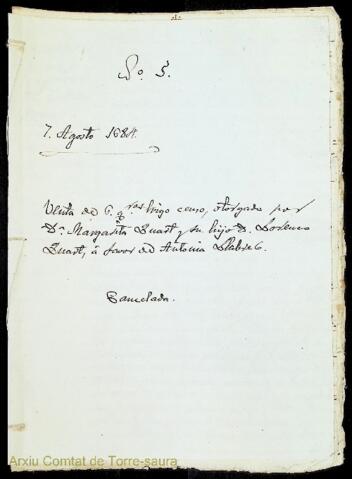 Nº 5.
7. Agosto 1684.
Venta de 6. qras trigo censo, otorgada por
Dª. Margarita Quart y su hijo D. Lorenzo
Quart, á favor de Antonia Llabrés.
Cancelada.
Arxiu Comtat de Torre-saura